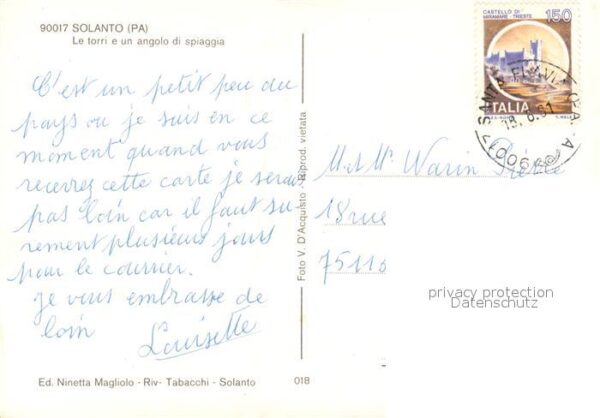 90017 SOLANTO (PA)
Le torri e un angolo di spiaggia
C'est un petit peu du
pays ou je suis en ce
moment quand vous
recevrez cette carte je serai
pas loin car il faut su
rement plusieurs jours
pour le courrier.
je vous embrasse de
loin
Louisette
Ed. Ninetta Magliolo - Riv- Tabacchi - Solanto
018
Foto V. D'Acquisto - Riprod. vietata
CASTELLO DI
MIRAMARE - TRIESTE
150
ITALIA
SANTA FLAVIA (PA)
90017
M et Mme Warin
18 rue
75116
privacy protection
Datenschutz